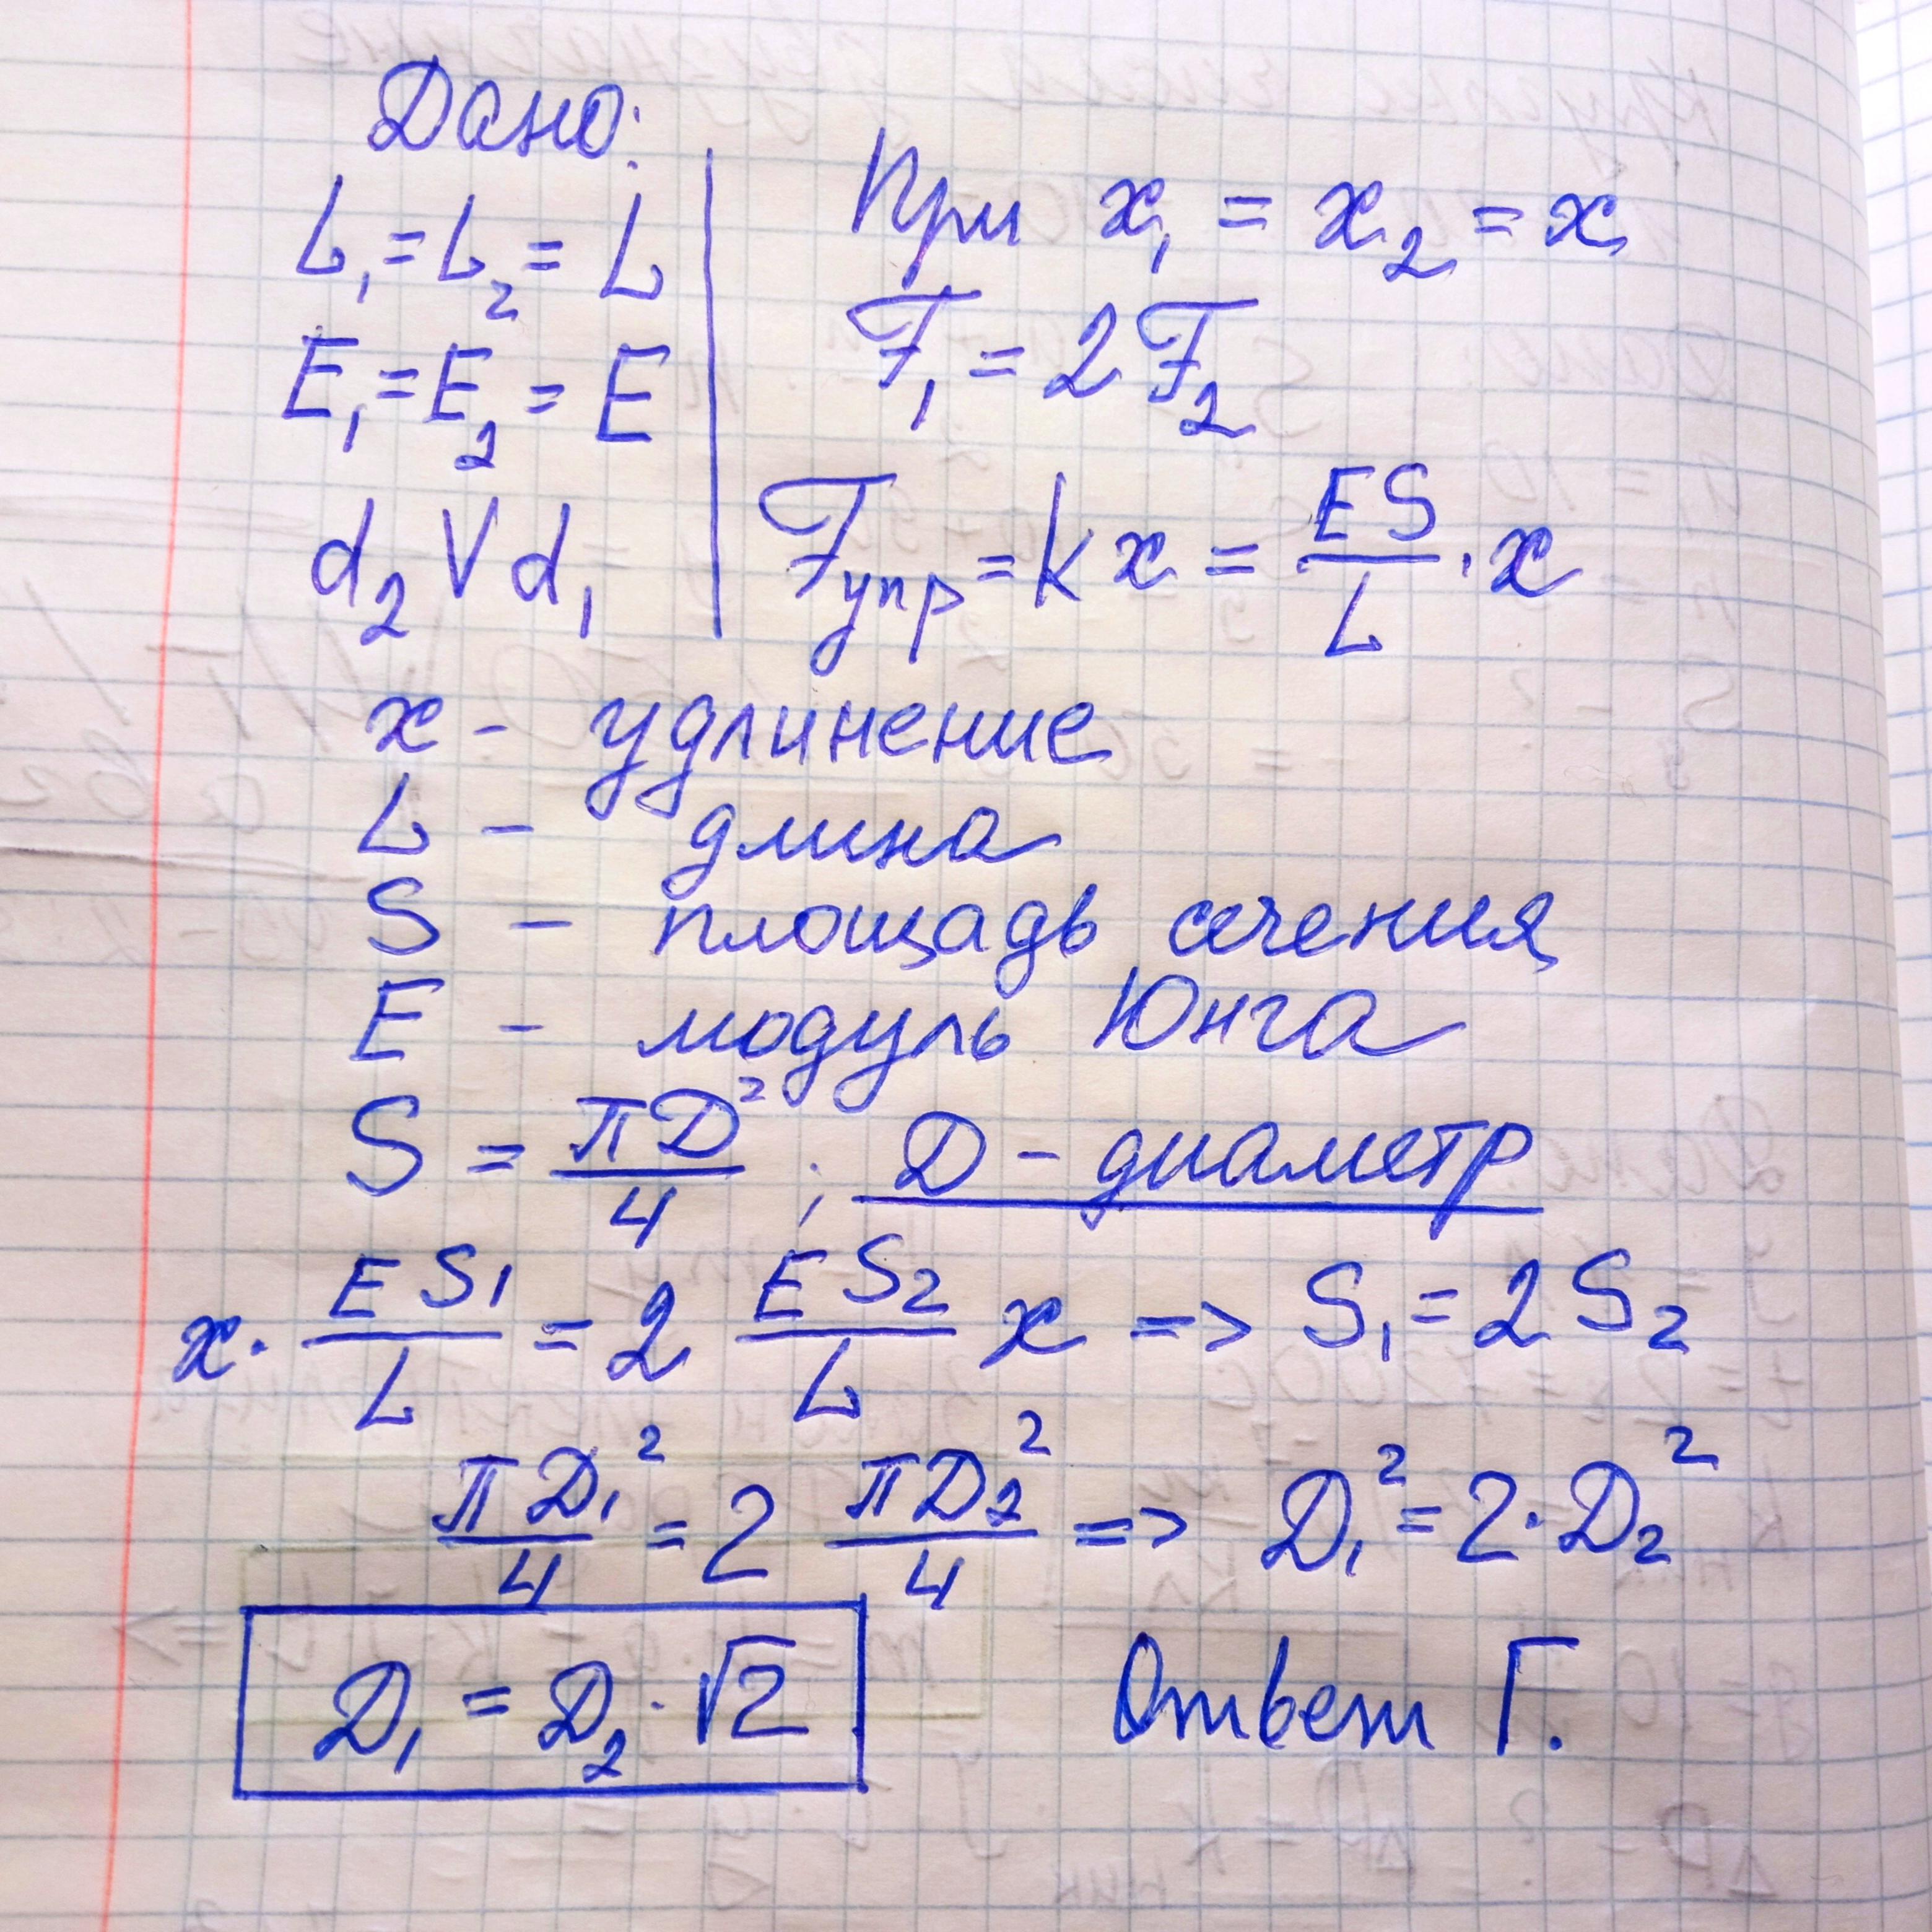 Дано:
L₁ = L₂ = L
E₁ = E₂ = E
d₂ V d₁
При x₁ = x₂ = x
F₁ = 2F₂
Fупр = kx = ES/L · x
x - удлинение
L - длина
S - площадь сечения
E - модуль Юнга
S = πD²/4 ; D - диаметр
x · ES₁/L = 2 ES₂/L x => S₁ = 2S₂
πD₁²/4 = 2 πD₂²/4 => D₁² = 2 · D₂²
D₁ = D₂ · √2
Ответ Г.